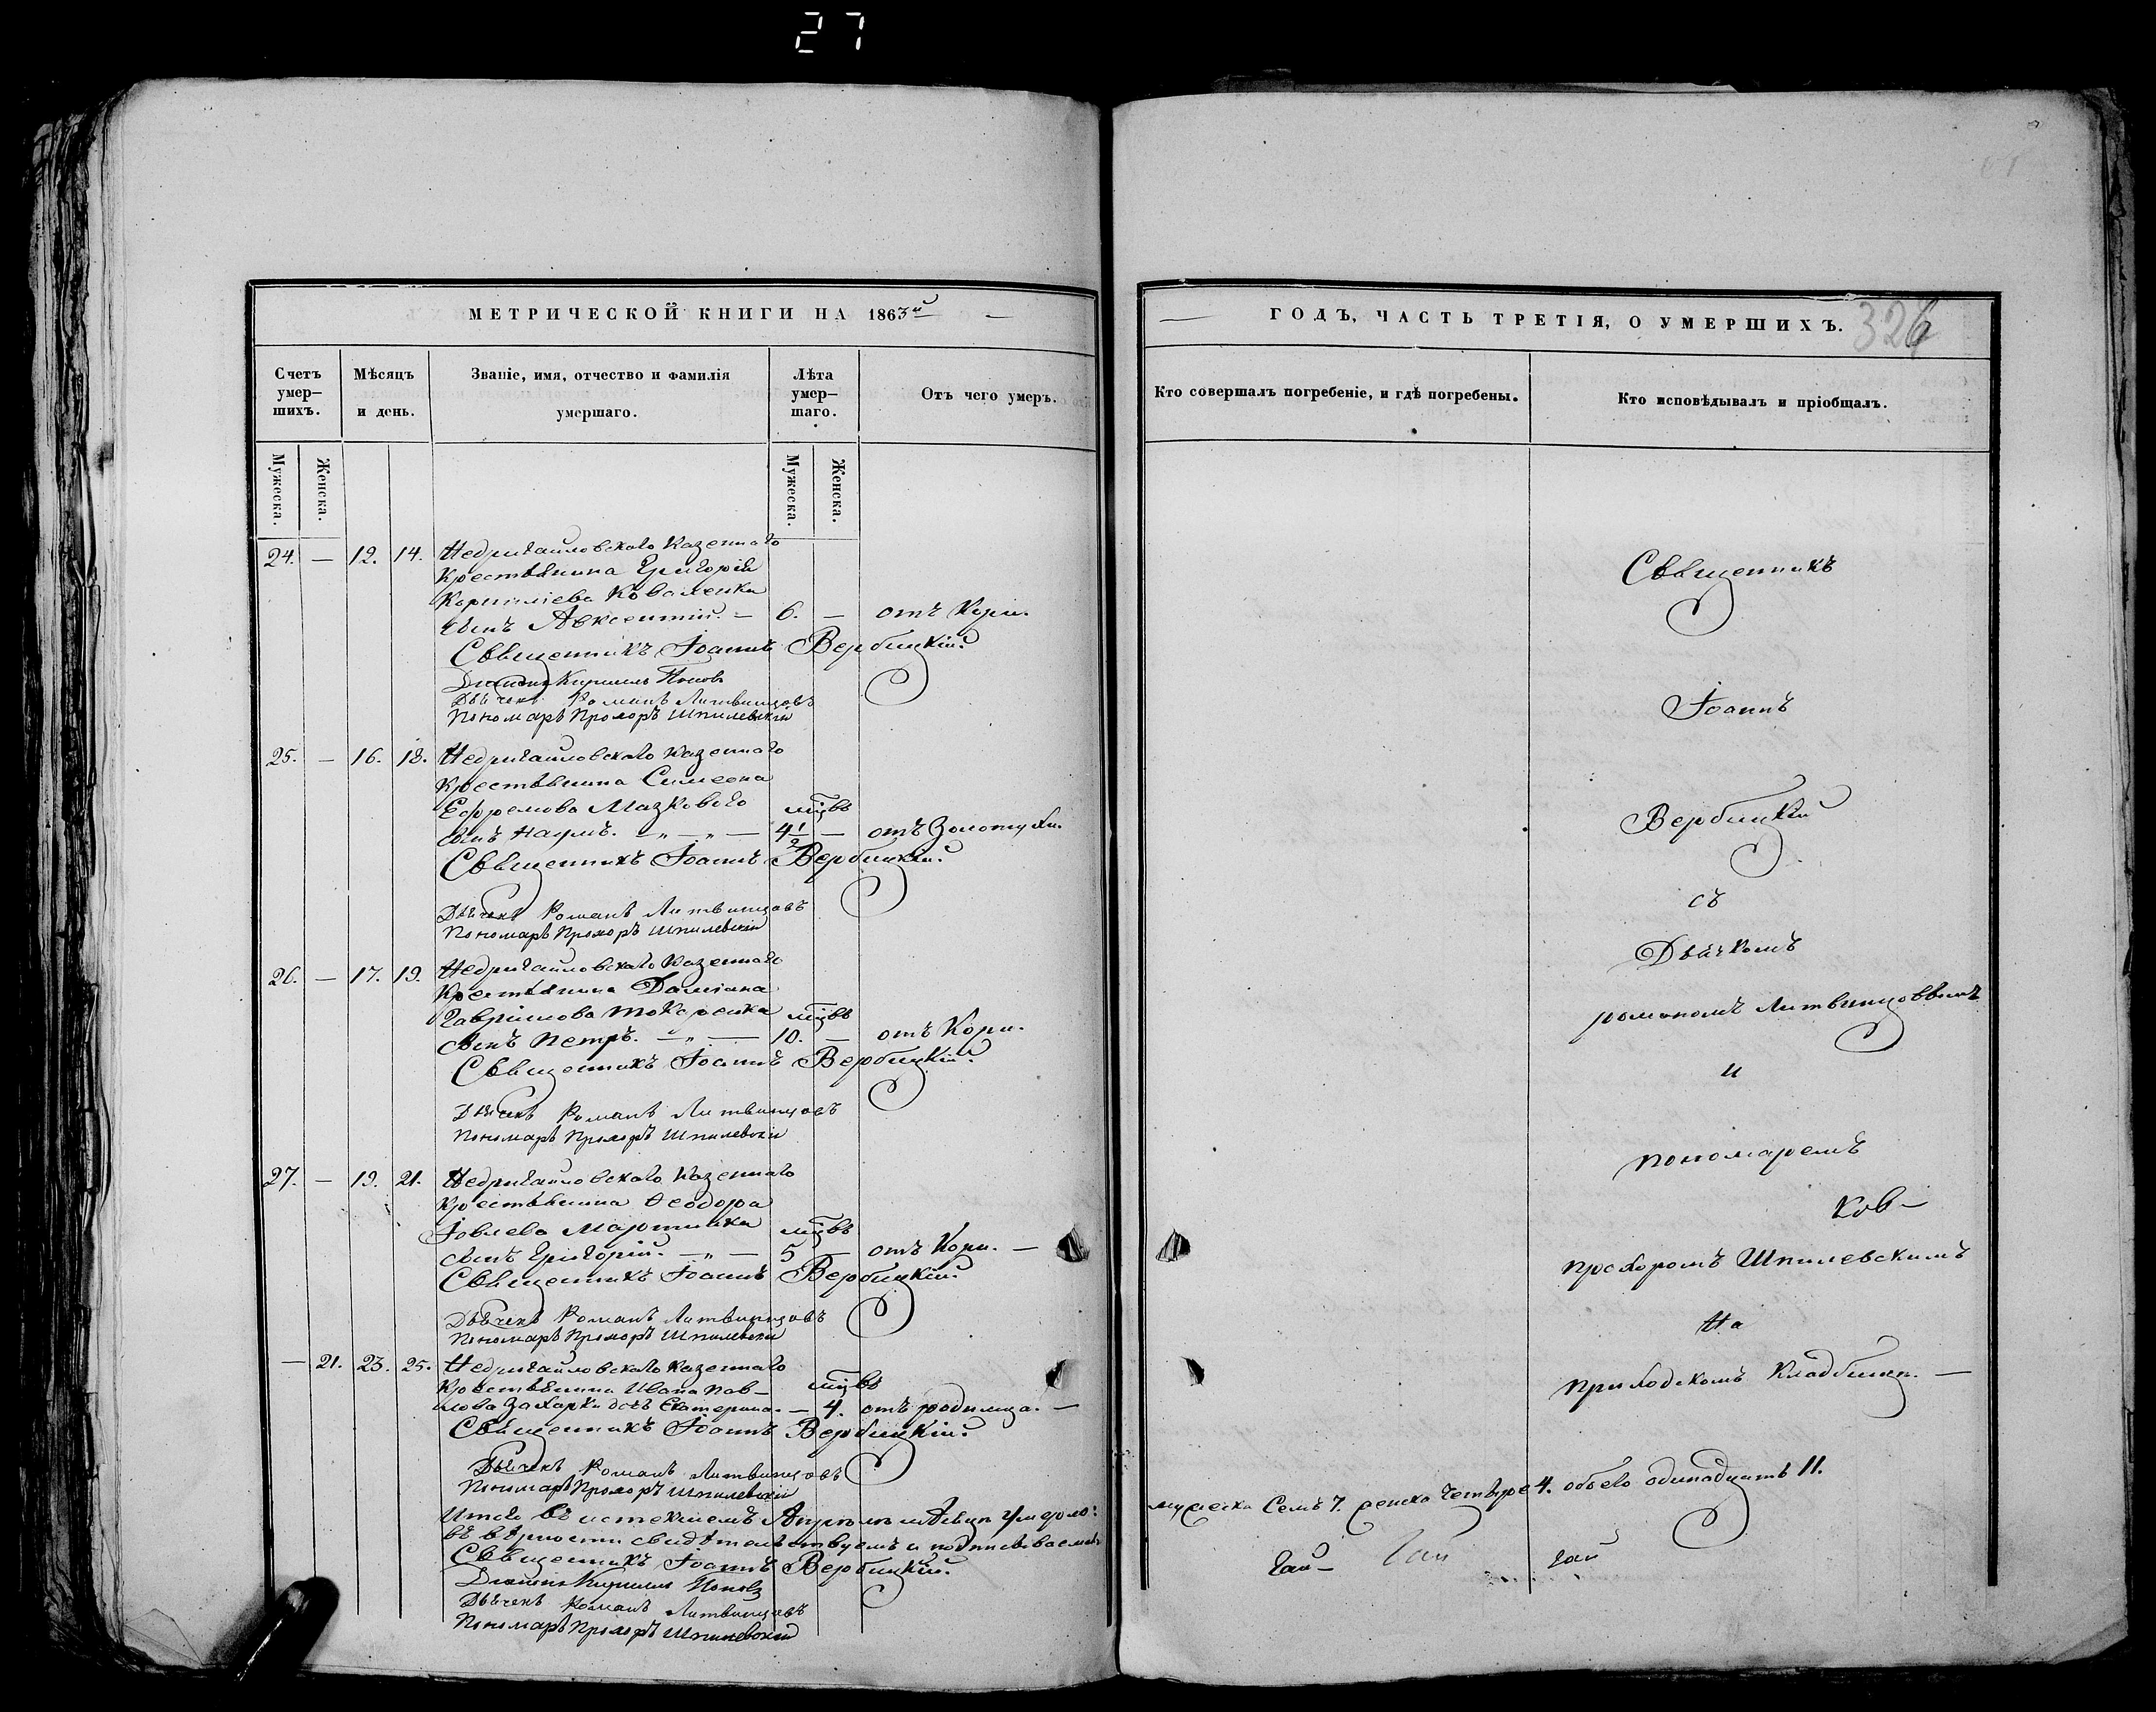 27
МЕТРИЧЕСКОЙ КНИГИ НА 1863й
Счетъ умер-шихъ.
Мѣсяцъ и день.
Званіе, имя, отчество и фамилія умершаго.
Лѣта умер-шаго.
Отъ чего умеръ.
Мужеска.
Женска.
Мужеска.
Женска.
24. — 12. 14. Недригайловскаго Казеннаго
Крестьянина Григорія
Корниліева Коваленка
сынъ Авксентій. — 6. — отъ Кори.
Священникъ Іоаннъ Вербицкій.
Діаконъ Кириллъ Поповъ
Дьячекъ Романъ Литвинцовъ
Пономарь Прохоръ Шпилевскій
25. — 16. 18. Недригайловскаго Казеннаго
Крестьянина Симеона
Ефремова Мазковаго мцвъ
сынъ Наумъ. — „ — „ — 4½ — отъ Золотухи.
Священникъ Іоаннъ Вербицкій.
Дьячекъ Романъ Литвинцовъ
Пономарь Прохоръ Шпилевскій
26. — 17. 19. Недригайловскаго Казеннаго
Крестьянина Даміана
Гавріилова Токаренка мцвъ
сынъ Петръ. — „ — 10. — отъ Кори.
Священникъ Іоаннъ Вербицкій.
Дьячекъ Романъ Литвинцовъ
Пономарь Прохоръ Шпилевскій
27. — 19. 21. Недригайловскаго Казеннаго
Крестьянина Ѳеодора
Іовлева Мартинка мцвъ
сынъ Григорій. — „ — 5 — отъ Кори. —
Священникъ Іоаннъ Вербицкій.
Дьячекъ Романъ Литвинцовъ
Пономарь Прохоръ Шпилевскій
— 21. 23. 25. Недригайловскаго Казеннаго
Крестьянина Ивана Пав- мцвъ
лова Захарки дочь Екатерина. — 4. отъ родимца. —
Священникъ Іоаннъ Вербицкій.
Дьячекъ Романъ Литвинцовъ
Пономарь Прохоръ Шпилевскій
Итого въ истекшемъ Апрѣлѣ мѣсяцѣ умерло:
въ вѣрности свидѣтельствуемъ и подписываемъ
Священникъ Іоаннъ Вербицкій.
Діаконъ Кириллъ Поповъ
Дьячекъ Романъ Литвинцовъ
Пономарь Прохоръ Шпилевскій
ГОДЪ, ЧАСТЬ ТРЕТІЯ, О УМЕРШИХЪ.
326
Кто совершалъ погребеніе, и гдѣ погребены.
Кто исповѣдывалъ и пріобщалъ.
Священникъ
Іоаннъ
Вербицкій
съ
Дьячкомъ
романомъ Литвинцовымъ
и
пономаремъ
прохоромъ Шпилевскимъ
На
приходскомъ Кладбищѣ. —
мужеска Семь 7. женска Четыре 4. обоего одинадцать 11.